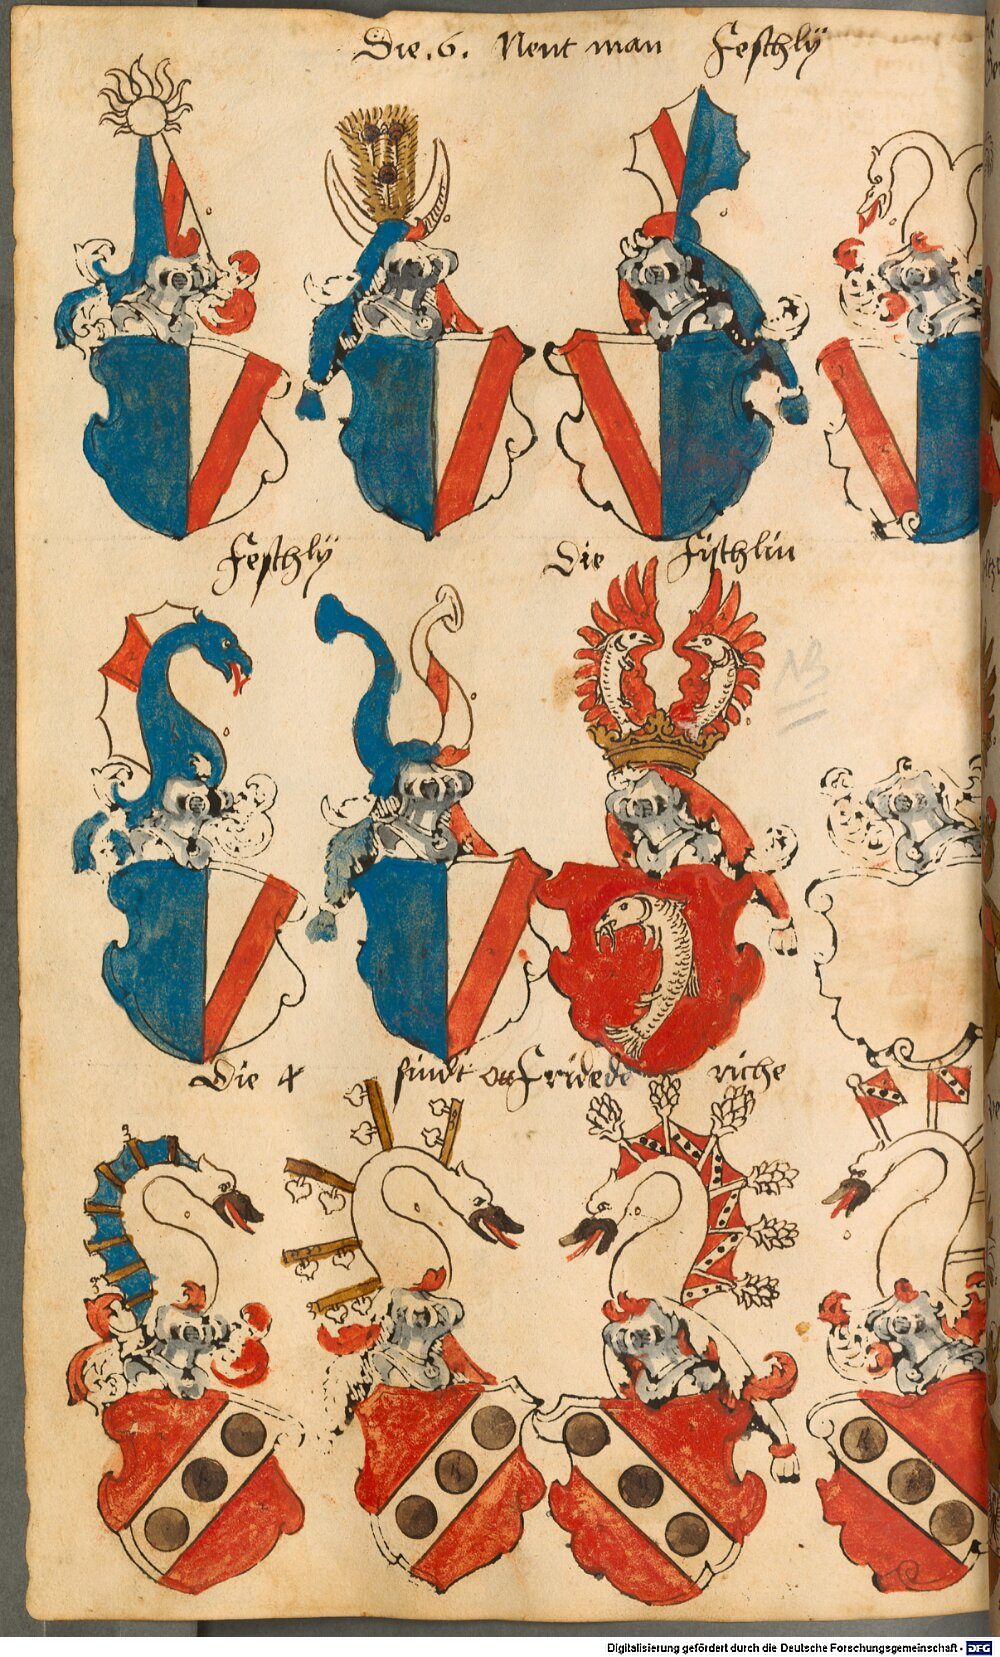 Die .6. Nent man Feschly
Feschly
Die Fyschlin
NB
Die 4 sindt Fride riche
Digitalisierung gefördert durch die Deutsche Forschungsgemeinschaft - DFG